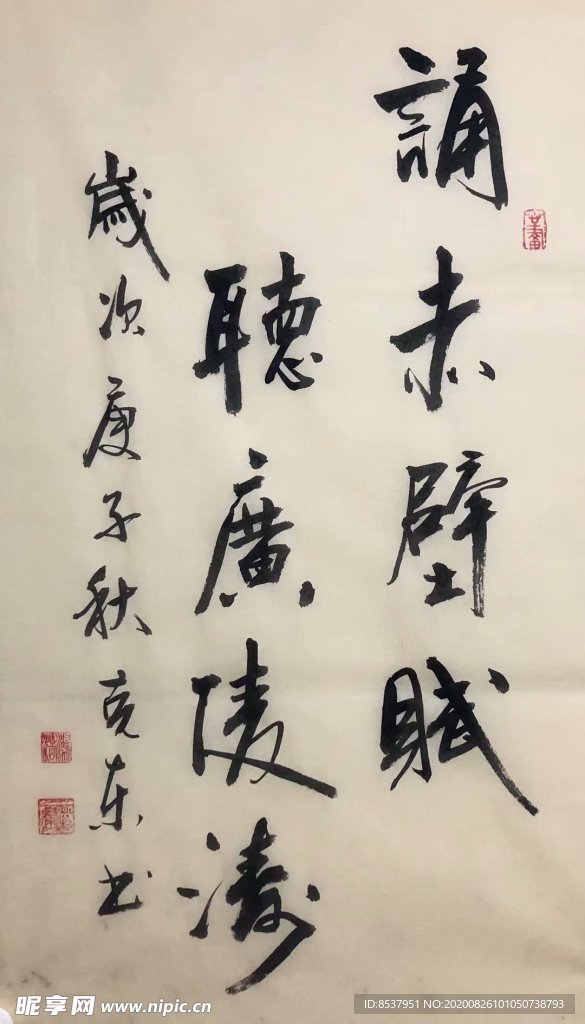 誦赤壁賦
聽廣陵濤
歲次庚子秋克东书
昵享网 www.nipic.cn
ID:8537951 NO:20200826101050738793